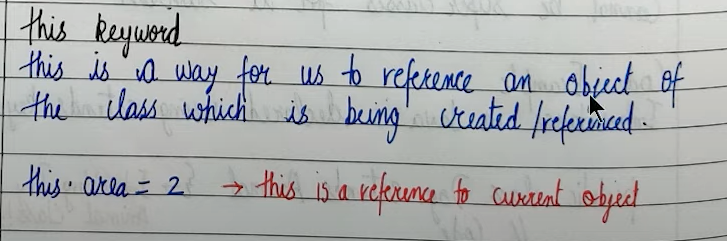 this keyword
this is a way for us to reference an object of
the class which is being created /referenced.
this. area = 2 → this is a reference to current object